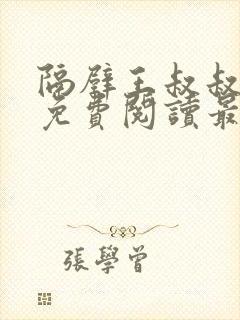 隔壁王叔叔
免費閱讀最
張學曾